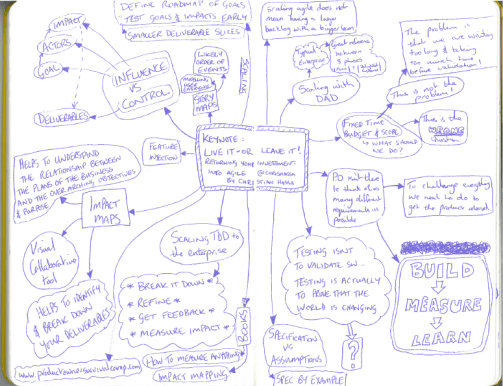 IMPACT
ACTORS
GOAL
DELIVERABLES
INFLUENCE
VS
CONTROL
DEFINE ROADMAP OF GOALS
TEST GOALS & IMPACTS EARLY
SMALLER DELIVERABLE SLICES
SCALING
LIKELY
ORDER OF
EVENTS
STORY
MAPS
FEATURE
INJECTION
scaling agile does not
mean having a
backlog with a bigger
Scaling with
DAD
The problem is
that we are waiting
too long & taking
too much time
before validation!
This is not the
problem!
This is the
Fixed Time
Budget & Scope
so what should
we be?
KEYNOTE:
LIVE IT - OR LEAVE IT!
RETURNING YOUR INVESTMENT
INTO AGILE
BY CHRISTIAN HASSA
HELPS TO UNDERSTAND
THE RELATIONSHIP BETWEEN
THE PLANS OF THE BUSINESS
AND THE OVERARCHING OBJECTIVES
& PURPOSE
IMPACT
MAPS
Visual
Collaborative
tool
HELPS TO IDENTIFY
& BREAK DOWN
YOUR DELIVERABLES
SCALING TDD to
the enterprise
* BREAK IT DOWN *
* REFINE *
* GET FEEDBACK *
* MEASURE IMPACT *
BOOKS
HOW TO MEASURE ANYTHING
IMPACT MAPPING
PO
to think of as
many different
requirements as
possible
To challenge everything
we need to do to
get the product released
TESTING ISN'T
TO VALIDATE SW...
TESTING IS ACTUALLY
TO PROVE THAT THE
WORLD IS CHANGING
?
SPECIFICATION
VS
ASSUMPTIONS
SPEC BY EXAMPLE
BUILD
MEASURE
LEARN